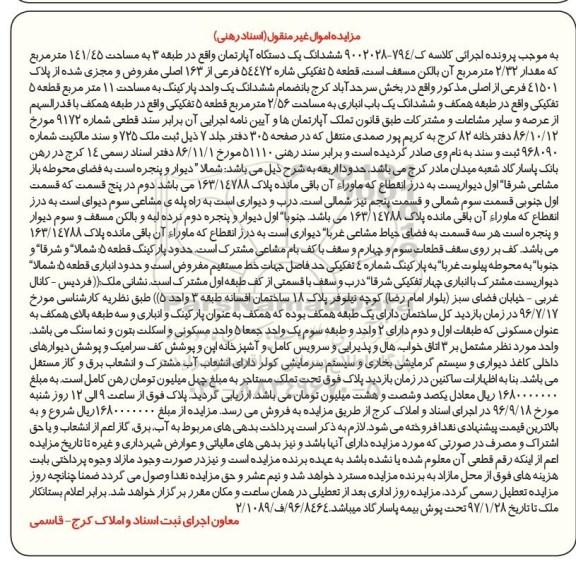 مزایده اموال غیر منقول (اسناد رهنی)
به موجب پرونده اجرائی کلاسه ک/۷۹۴-۹۰۰۲۰۲۸ ششدانگ یک دستگاه آپارتمان واقع در طبقه ۳ به مساحت ۱۴۱/۴۵ مترمربع
که مقدار ۲/۳۲ مترمربع آن بالکن مسقف است، قطعه ۵ تفکیکی شاره ۵۴۴۷۲ فرعی از ۱۶۳ اصلی مفروض و مجزی شده از پلاک
۴۱۵۰۱ فرعی از اصلی مذکور واقع در بخش سرحدآباد کرج بانضمام ششدانگ یک واحد پارکینگ به مساحت ۱۱ متر مربع قطعه ۵
تفکیکی واقع در طبقه همکف و ششدانگ یک باب انباری به مساحت ۲/۵۶ مترمربع قطعه ۵ تفکیکی واقع در طبقه همکف با قدرالسهم
از عرصه و سایر مشاعات و مشترکات طبق قانون تملک آپارتمان ها و آیین نامه اجرایی آن برابر سند قطعی شماره ۹۱۷۲ مورخ
۸۶/۱۰/۱۲ دفترخانه ۸۲ کرج به کریم پور صمدی منتقل که در صفحه ۳۰۵ دفتر جلد ۷ ذیل ثبت ملک ۷۲۵ و سند مالکیت شماره
۹۶۸۰۹۰ ثبت و سند به نام وی صادر گردیده است و برابر سند رهنی ۵۱۱۱۰ مورخ ۸۶/۱۱/۱ دفتر اسناد رسمی ۱۴ کرج در رهن
بانک پاسارگاد شعبه میدان مادر کرج می باشد. حدود اربعه به شرح ذیل می باشد: شمالا" دیوار و پنجره است به فضای محوطه باز
مشاعی شرقا" اول دیواریست به درز انقطاع که ماوراء آن باقی مانده پلاک ۱۶۳/۱۴۷۸۸ می باشد دوم در پنج قسمت که قسمت
اول جنوبی قسمت سوم شمالی و قسمت پنجم نیز شمالی است. درب و دیواری است به راه پله ی مشاعی سوم دیوای است به درز
انقطاع که ماوراء آن باقی مانده پلاک ۱۶۳/۱۴۷۸۸ می باشد. جنوبا" اول دیوار و پنجره دوم نرده لبه و بالکن مسقف و سوم دیوار
و پنجره است هر سه قسمت به فضای حیاط مشاعی غربا" دیواری است به درز انقطاع که ماوراء آن باقی مانده پلاک ۱۶۳/۱۴۷۸۸
می باشد. کف بر روی سقف قطعات سوم و چهارم و سقف با کف بام مشاعی مشترک است. حدود پارکینگ قطعه ۵: شمالا" و شرقا" و
جنوبا" به محوطه پیلوت غربا" به پارکینگ شماره ۴ تفکیکی حد فاصل جهات خط مستقیم مفروض است و حدود انباری قطعه ۵: شمالا"
دیواریست مشترک با انباری چهار تفکیکی شرقا" درب و سقف با قسمتی از کف طبقه اول مشترک است. نشانی ملک: ((فردیس - کانال
غربی - خیابان فضای سبز (بلوار امام رضا) کوچه نیلوفر پلاک ۱۸ ساختمان افسانه طبقه ۳ واحد ۵)) طبق نظریه کارشناسی مورخ
۹۶/۷/۱۷ در زمان بازدید کل ساختمان دارای یک طبقه همکف بوده که همکف به عنوان پارکینگ و انباری و سه طبقه بالای همکف به
عنوان مسکونی که طبقات اول و دوم دارای ۲ واحد و طبقه سوم یک واحد جمعا ۵ واحد مسکونی و اسکلت بتون و نما سنگ می باشد.
واحد مورد نظر مشتمل بر ۳ اتاق خواب، هال و پذیرایی و سرویس کامل، و آشپزخانه اپن و پوشش کف سرامیک و پوشش دیوارهای
داخلی کاغذ دیواری و سیستم گرمایشی بخاری و سیستم سرمایشی کولر دارای انشعاب آب مشترک و انشعاب برق و گاز مستقل
می باشد. بنا به اظهارات ساکنین در زمان بازدید پلاک فوق تحت تملک مستاجر به مبلغ چهل میلیون تومان رهن کامل است. به مبلغ
۱۶۸۰۰۰۰۰۰۰ ریال معادل یکصد وشصت و هشت میلیون تومان می باشد، ارزیابی گردید. پلاک فوق از ساعت ۹ الی ۱۲ روز شنبه
مورخ ۹۶/۹/۱۸ در اجرای اسناد و املاک کرج از طریق مزایده به فروش می رسد. مزایده از مبلغ ۱۶۸۰۰۰۰۰۰۰ ریال شروع و به
بالاترین قیمت پیشنهادی نقدا فروخته می شود. لازم به ذکر است پرداخت بدهی های مربوط به آب، برق، گاز اعم از انشعاب و یا حق
اشتراک و مصرف در صورتی که مورد مزایده دارای آنها باشد و نیز بدهی های مالیاتی و عوارض شهرداری و غیره تا تاریخ مزایده
اعم از اینکه رقم قطعی آن معلوم شده یا نشده باشد به عهده برنده مزایده است و نیز در صورت وجود مازاد وجوه پرداختی بابت
هزینه های فوق از محل مازاد به برنده مزایده مسترد خواهد شد و نیم عشر و حق مزایده نقدا وصول می گردد ضمنا چنانچه روز
مزایده تعطیل رسمی گردد، مزایده روز اداری بعد از تعطیلی در همان ساعت و مکان مقرر برگزار خواهد شد. برابر اعلام بستانکار
ملک تا تاریخ ۹۷/۱/۲۸ تحت پوش بیمه پاسارگاد میباشد. ۹۶/۸۴۶۴/ف ۲/۱۰۸۹
معاون اجرای ثبت اسناد و املاک کرج - قاسمی